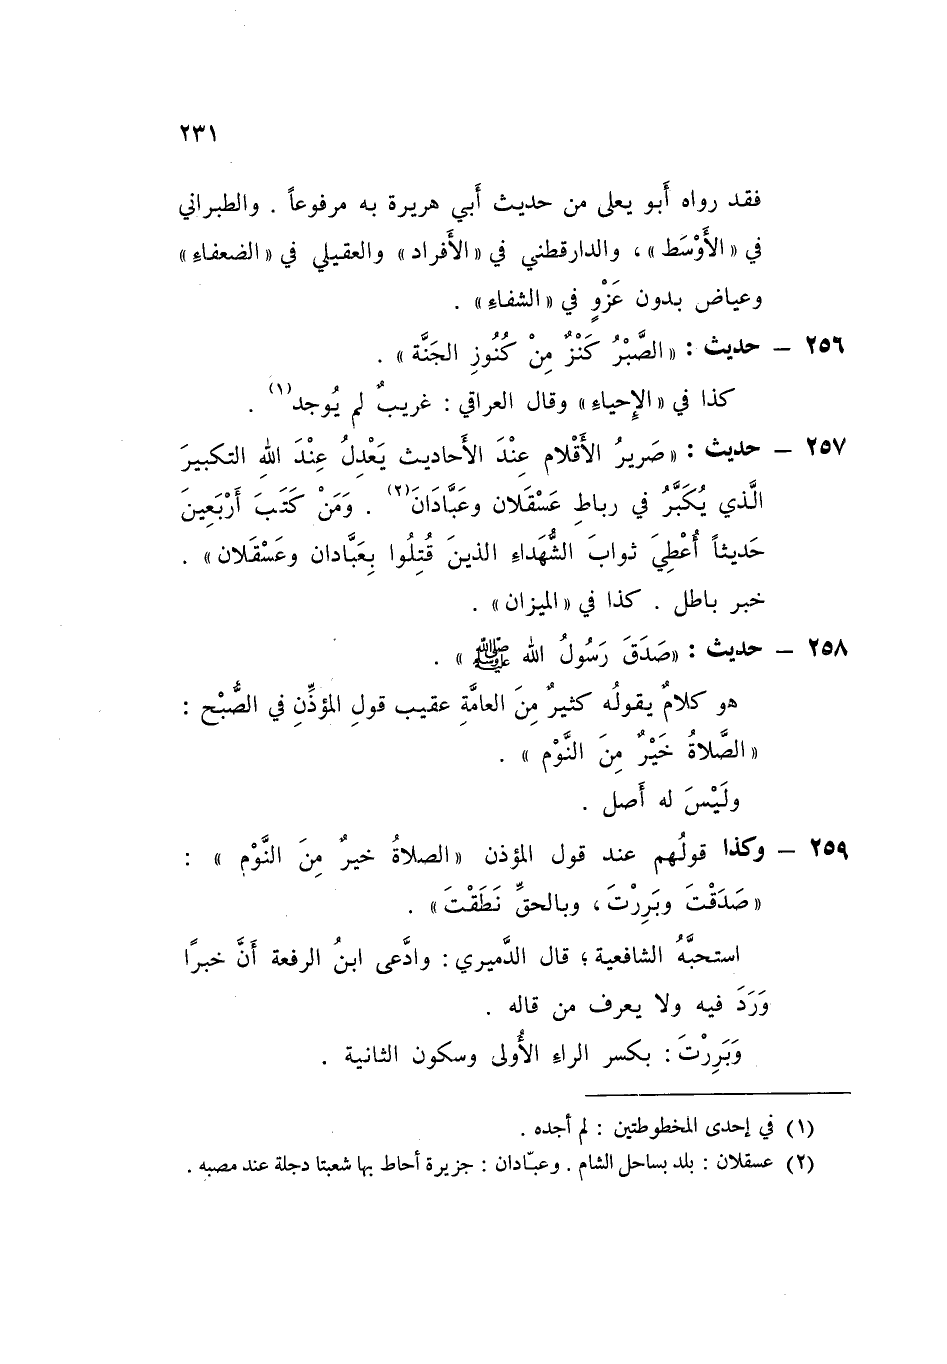 ٢٣١
فقد رواه أَبو يعلى من حديث أَبي هريرة به مرفوعاً . والطبراني
في « الأَوْسَط » ، والدارقطني في « الأَفراد » والعقيلي في « الضعفاءِ »
وعياض بدون عَزْوٍ في « الشفاءِ » .
٢٥٦ – حديث : « الصَّبْرُ كَنْزٌ مِنْ كُنُوزِ الجَنَّة » .
كذا في « الإِحياءِ » وقال العراقي : غريبٌ لم يُوجد(١) .
٢٥٧ – حديث : « صَريرُ الأَقْلام عِنْدَ الأَحاديث يَعْدِلُ عِنْدَ اللهِ التكبيرَ
الَّذي يُكَبَّرُ في رباطِ عَسْقَلان وعَبَّادَانَ(٢) . وَمَنْ كَتَبَ أَرْبَعِينَ
حَديثاً أُعْطِيَ ثوابَ الشُّهَداءِ الذينَ قُتِلُوا بِعَبَّادان وعَسْقَلان » .
خبر باطل . كذا في « الميزان » .
٢٥٨ – حديث : «صَدَقَ رَسُولُ الله ﷺ » .
هو كلامٌ يقولُه كثيرٌ مِنَ العامَّةِ عقيب قولِ المؤذِّنِ في الصُّبْح :
« الصَّلاةُ خَيْرٌ مِنَ النَّوْم » .
ولَيْسَ له أَصل .
٢٥٩ – وكذا قولُهم عند قول المؤذن « الصلاةُ خيرٌ مِنَ النَّوْمِ » :
« صَدَقْتَ وبَرِرْتَ ، وبالحقِّ نَطَقْتَ » .
استحبَّهُ الشافعية ؛ قال الدَّميري : وادَّعى ابنُ الرفعة أَنَّ خبرًا
وَرَدَ فيه ولا يعرف من قاله .
وَبَرِرْتَ : بكسر الراءِ الأُولى وسكون الثانية .
(١) في إحدى المخطوطتين : لم أجده .
(٢) عسقلان : بلد بساحل الشام . وعبّادان : جزيرة أحاط بها شعبتا دجلة عند مصبه .